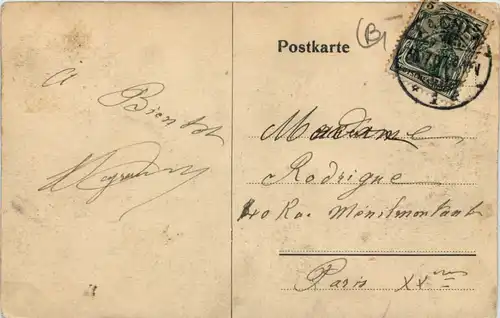 Postkarte
B
a
Bientôt
Madame
Rodrigue
40 Rue Ménilmontant
Paris XXme